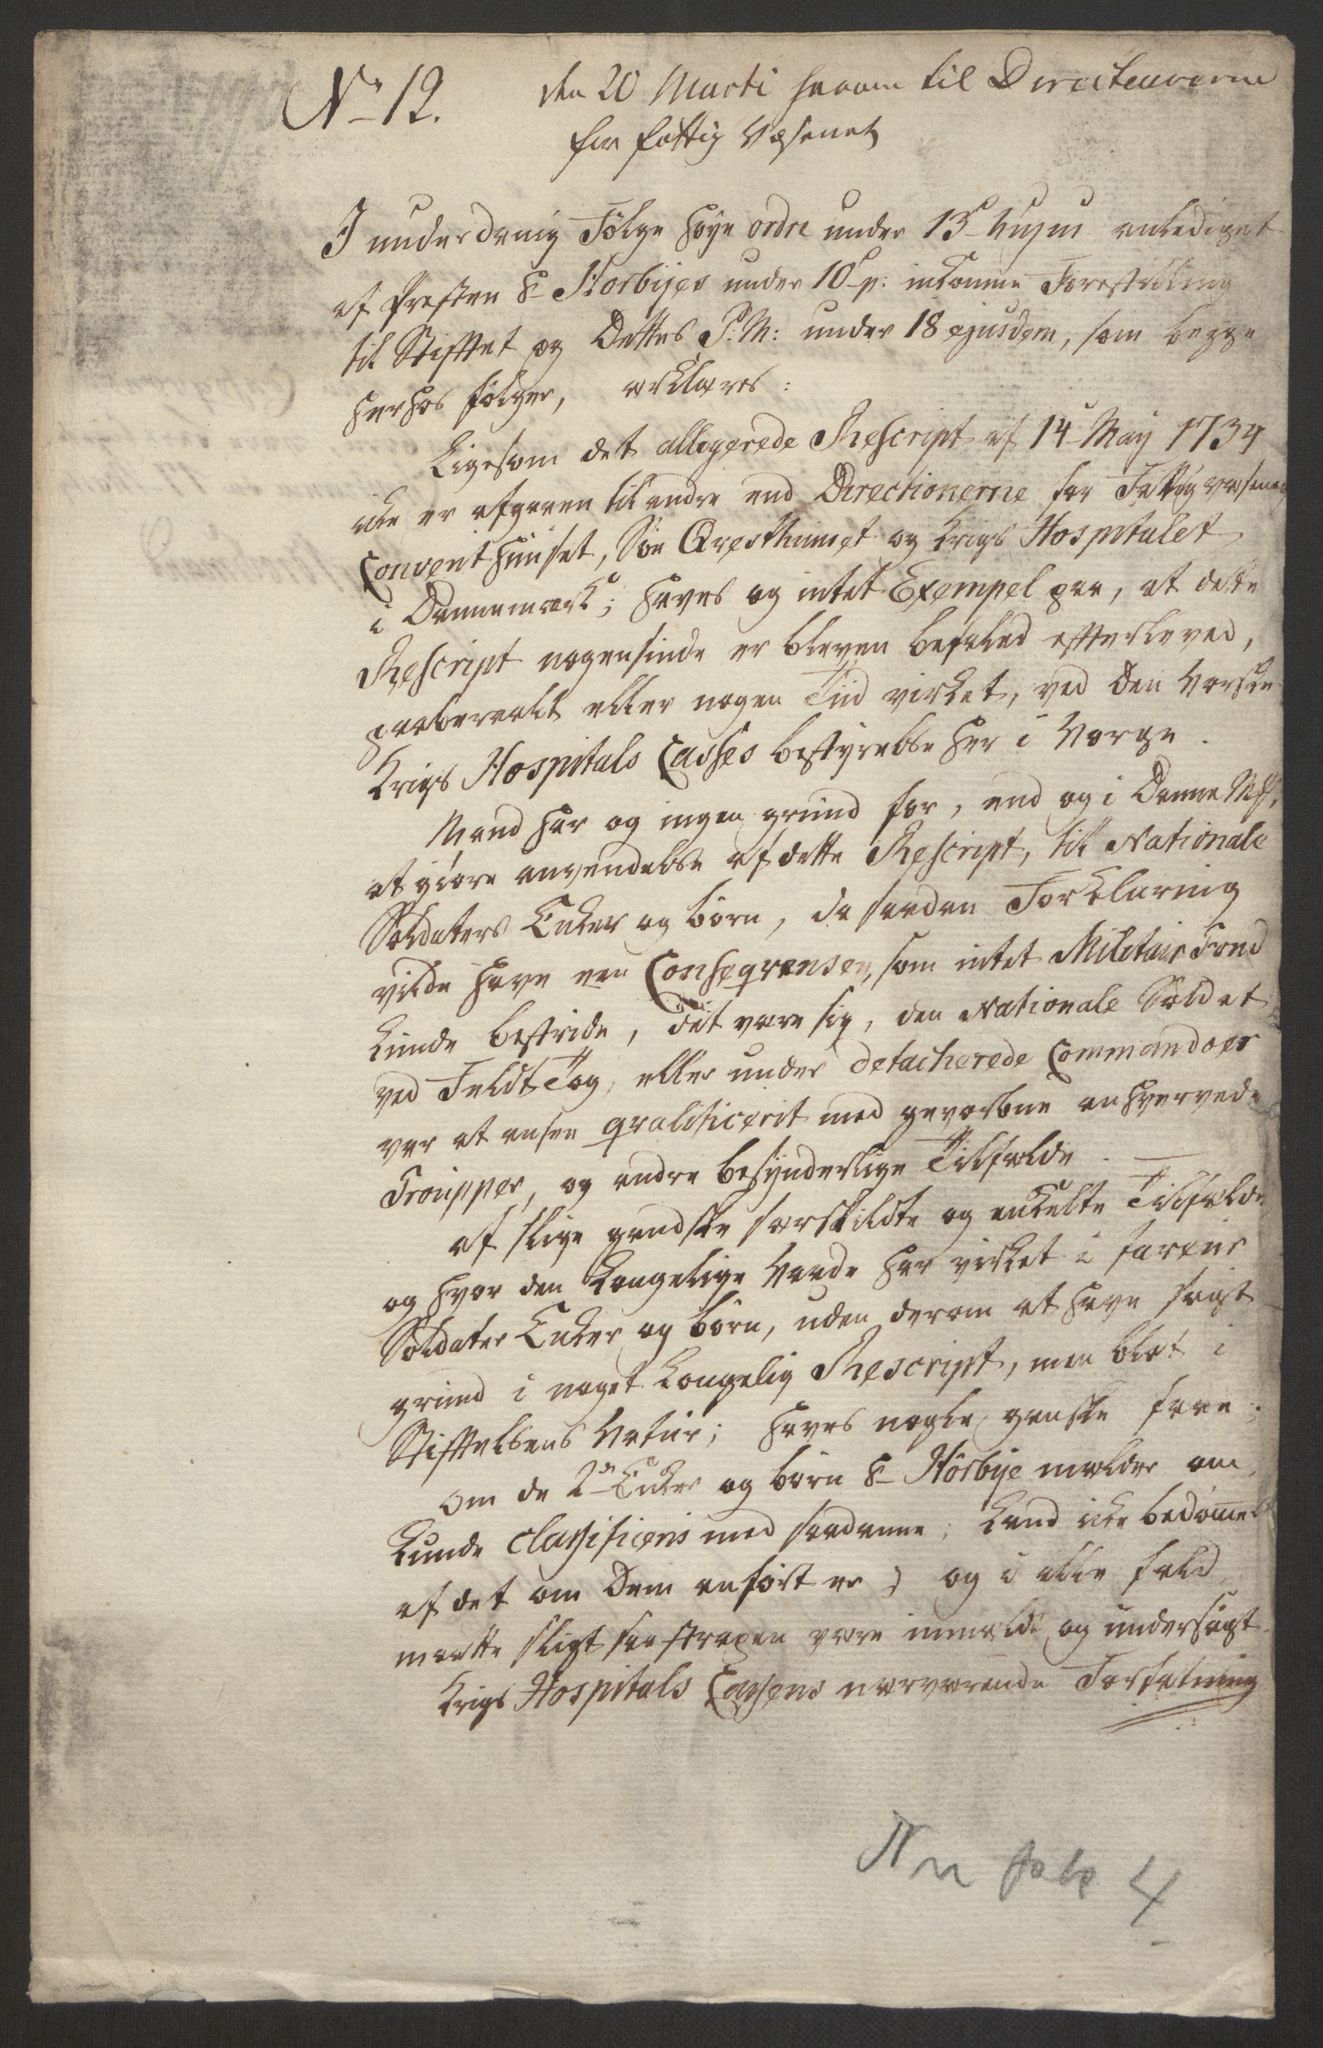 No 12. den 20 Marti herom til Directeurerne
for fattig Væsenet
I underdanig Følge høye ordre under 13de hujus anlediget
af Præsten Hr Horbyes under 10de p: indkomne Forestilling
til Stifftet og Dettes P.M: under 18 ejusdem, som begge
herhos følger, erklæres:
Ligesom det allegerede Rescript af 14de May 1734
icke er afgaaen til andre end Directionerne for Fattigvæsenet
Convent huuset, Søe Qvæsthuuset og Krigs Hospitalet
i Dannemark; haves og intet Exempel paa, at dette
Rescript nogensinde er bleven befaled efterleved,
paaberaabt eller nogen Tiid virket, ved den Norske
Krigs Hospitals Casses bestyrelse her i Norge.
Mand har og ingen grund for, end og i Denne
at giøre anvendelse af dette Rescript, till Nationale
Soldaters Enker og børn, da saadan Forklaring
vilde have een Conseqvensen, som intet Militair Fond
kunde bestride, det være sig, den Nationale Soldat
ved Feldt Tog, eller under detacherede Commandoer
var at ansee qvalificerit med gevorbne anhvervede
Troupper, og andre besynderlige Tilfælde.
af slige gandske særskildte og enkelte Tilfælde
og hvor den Kongelige Naade har virket i faveur
Soldater Enker og børn, uden derom at have søgt
grund i noget Kongelig Rescript, men blot i
Stifftelsens Natur; haves nogle ganske faae;
Om de 2de Enker og børn Hr Hörbye melder om,
kunde classificeris med saadanne; kand icke bedømmes
af det om Dem anført er; og i alle fald
maatte sligt være anmeldt og undersøgt.
Krigs Hospitals Cassens nærværende Forfatning
4